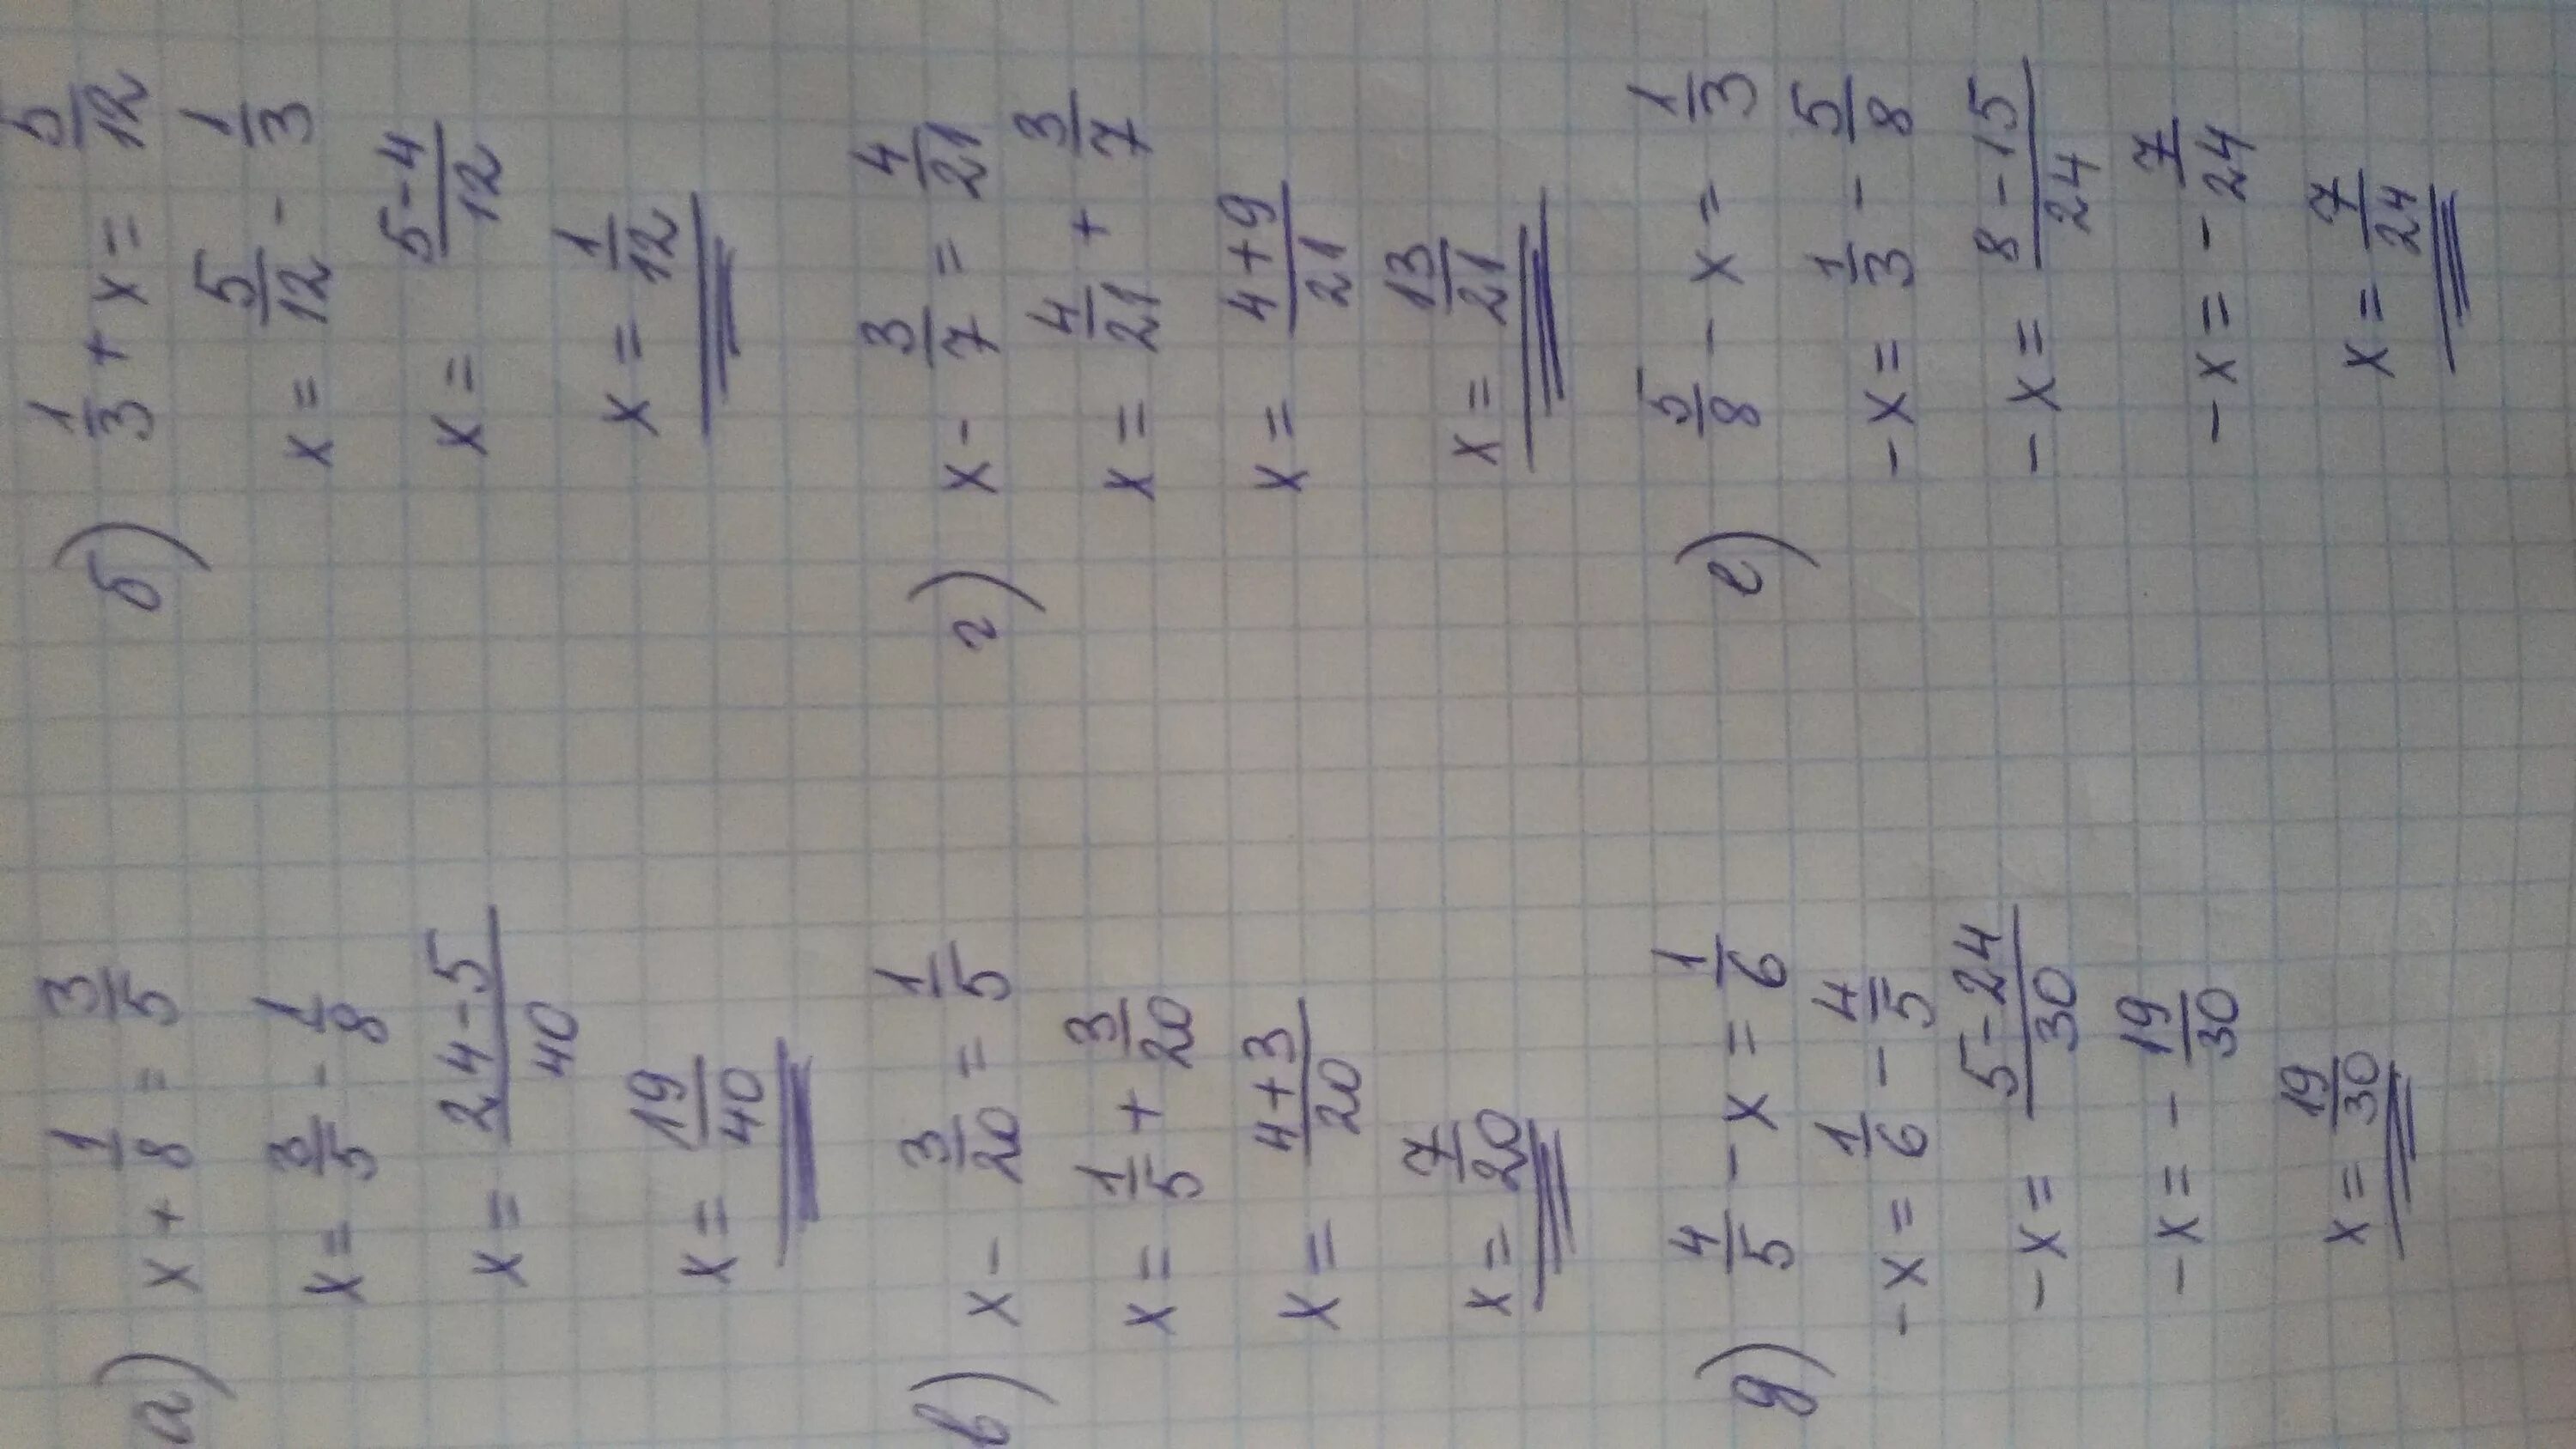 а) x + 1/8 = 3/5
x = 3/5 - 1/8
x = (24-5)/40
x = 19/40
б) 1/3 + x = 5/12
x = 5/12 - 1/3
x = (5-4)/12
x = 1/12
в) x - 3/20 = 1/5
x = 1/5 + 3/20
x = (4+3)/20
x = 7/20
г) x - 3/7 = 4/21
x = 4/21 + 3/7
x = (4+9)/21
x = 13/21
д) 4/5 - x = 1/6
-x = 1/6 - 4/5
-x = (5-24)/30
-x = - 19/30
x = 19/30
е) 5/8 - x = 1/3
-x = 1/3 - 5/8
-x = (8-15)/24
-x = - 7/24
x = 7/24